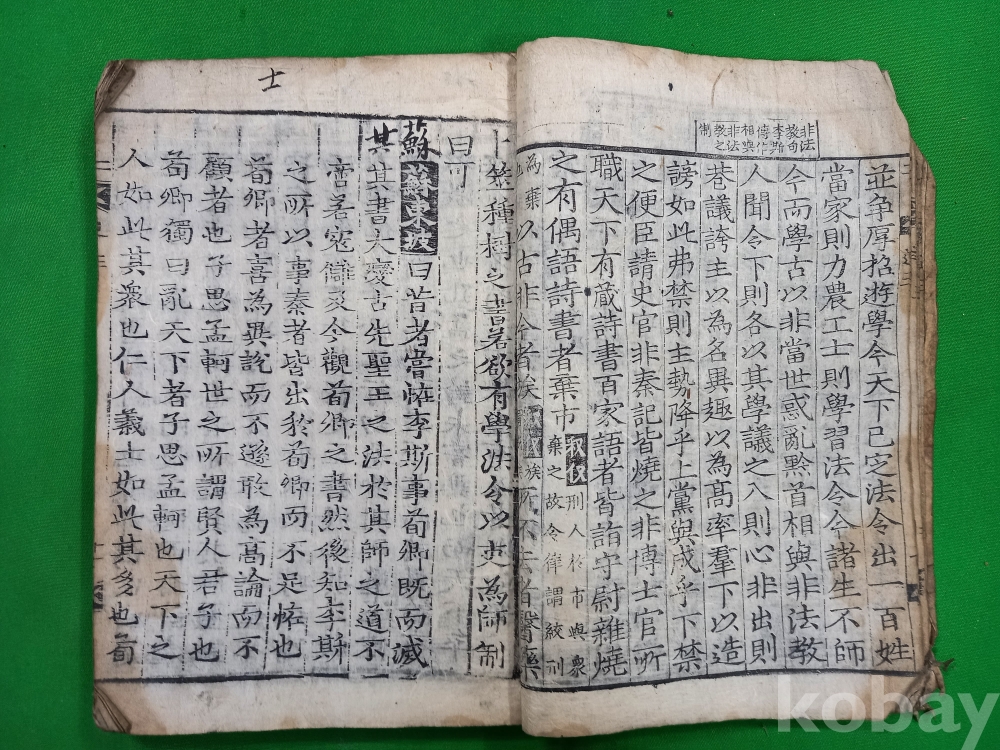 非法
教句
李斯
傳作
相與
非法
教之
制
並争厚招遊學今天下已定法令出一百姓
當家則力農工士則學習法令今諸生不師
今而學古以非當世惑亂黔首相與非法教
人聞令下則各以其學議之入則心非出則
巷議誇主以為名異趣以為高率羣下以造
謗如此弗禁則主勢降乎上黨與成乎下禁
之便臣請史官非秦記皆燒之非博士官所
職天下有蔵詩書百家語者皆詣守尉雜燒
之有偶語詩書者棄市刑人於市與衆
棄之故今律謂絞刑
為棄以古非今者族所不去者醫藥
士
卜筮種樹之書若欲有學法令以吏為師制
曰可
蘇蘇東坡曰昔者甞恠李斯事荀卿既而滅
其其書大變古先聖王之法於其師之道不
啻若寇讎及今觀荀卿之書然後知李斯
之所以事秦者皆出於荀卿而不足恠也
荀卿者喜為異說而不遜敢為高論而不
顧者也子思孟軻世之所謂賢人君子也
荀卿獨曰亂天下者子思孟軻也天下之
人如此其衆也仁人義士如此其多也荀
kobay